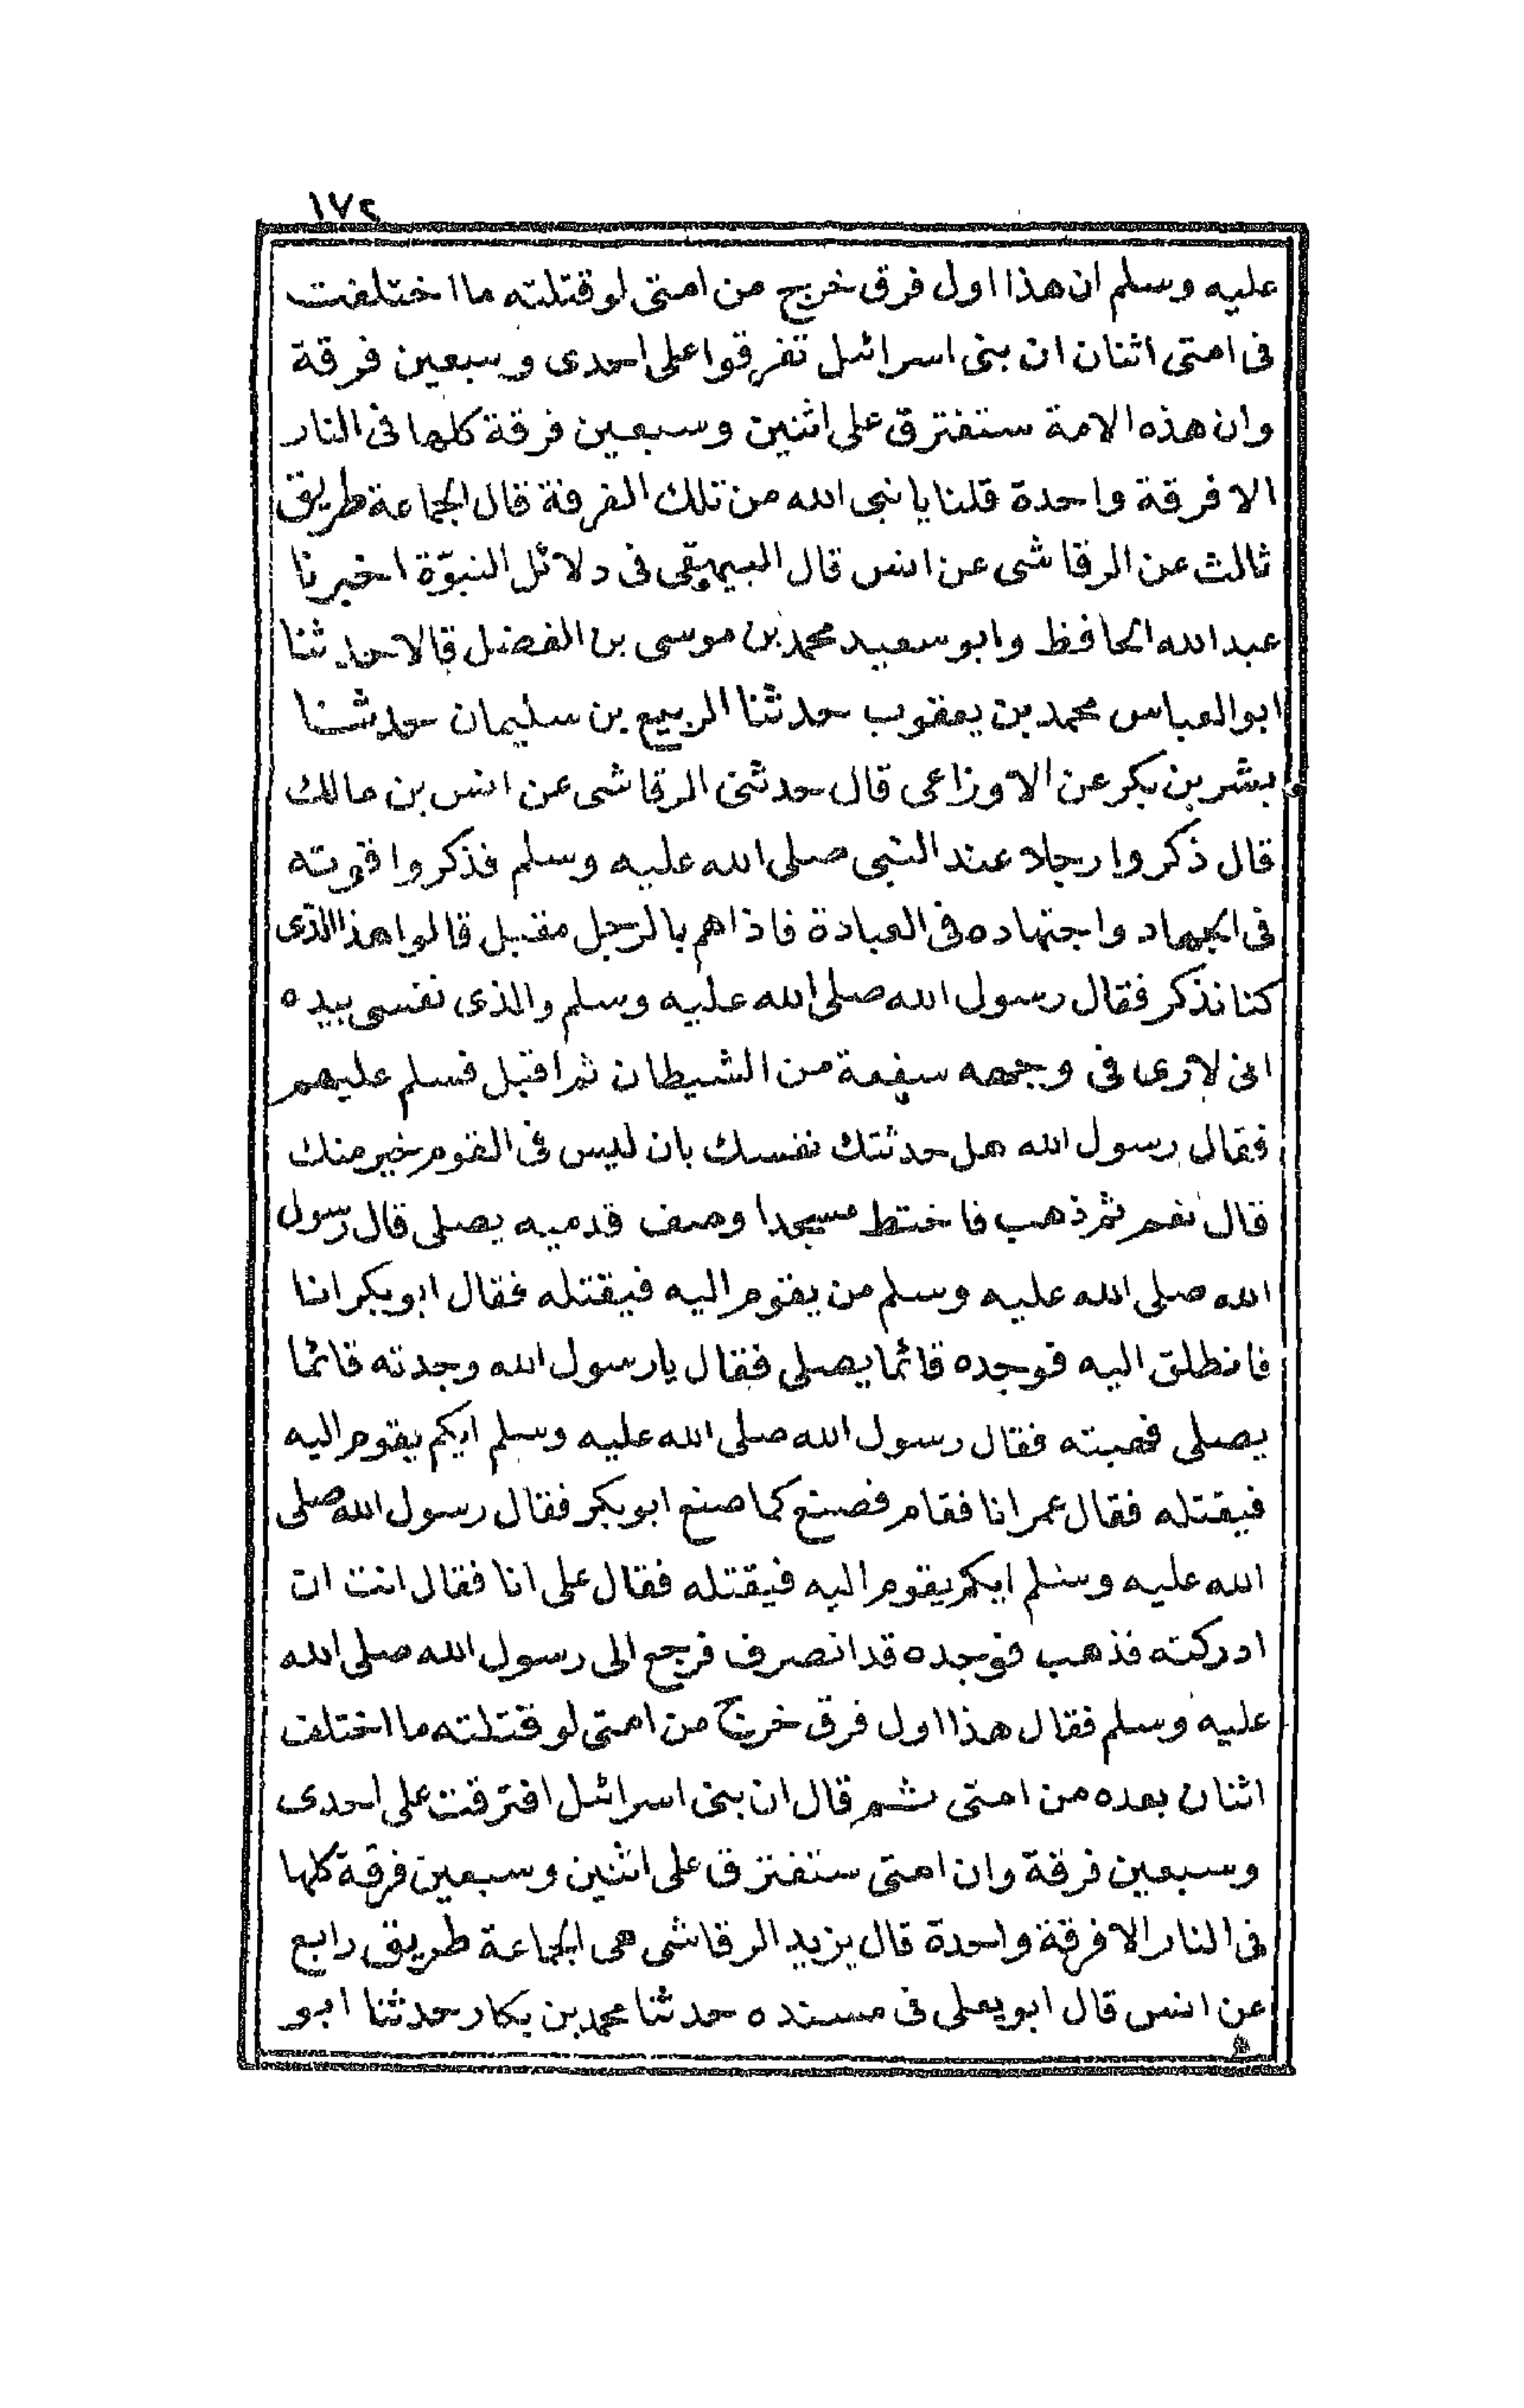 ١٧٢
عليه وسلم ان هذا اول فرق خرج من امتى لو قتلته ما اختلفت
فى امتى اثنان ان بنى اسرائيل تفرقوا على احدى وسبعين فرقة
وان هذه الامة ستفترق على اثنين وسبعين فرقة كلها فى النار
الا فرقة واحدة قلنا يا نبى الله من تلك الفرقة قال الجماعة طريق
ثالث عن الرقاشى عن انس قال البيهقى فى دلائل النبوّة اخبرنا
عبد الله الحافظ وابو سعيد محمد بن موسى بن الفضل قالا حدثنا
ابو العباس محمد بن يعقوب حدثنا الربيع بن سليمان حدثنا
بشر بن بكر عن الاوزاعى قال حدثنى الرقاشى عن انس بن مالك
قال ذكروا رجلا عند النبى صلى الله عليه وسلم فذكروا قوته
فى الجهاد واجتهاده فى العبادة فاذاهم بالرجل مقبل قالوا هذا الذى
كنا نذكر فقال رسول الله صلى الله عليه وسلم والذى نفسى بيده
انى لارى فى وجهه سفعة من الشيطان ثم اقبل فسلم عليهم
فقال رسول الله هل حدثتك نفسك بان ليس فى القوم خير منك
قال نعم ثم ذهب فاختط مسجدا وصف قدميه يصلى قال رسول
الله صلى الله عليه وسلم من يقوم اليه فيقتله فقال ابو بكر انا
فانطلق اليه فوجده قائما يصلى فقال يا رسول الله وجدته قائما
يصلى فهبته فقال رسول الله صلى الله عليه وسلم ايكم يقوم اليه
فيقتله فقال عمر انا فقام فصنع كما صنع ابو بكر فقال رسول الله صلى
الله عليه وسلم ايكم يقوم اليه فيقتله فقال على انا فقال انت ان
ادركته فذهب فوجده قد انصرف فرجع الى رسول الله صلى الله
عليه وسلم فقال هذا اول فرق خرج من امتى لو قتلته ما اختلف
اثنان بعده من امتى ثم قال ان بنى اسرائيل افترقت على احدى
وسبعين فرقة وان امتى ستفترق على اثنين وسبعين فرقة كلها
فى النار الا فرقة واحدة قال يزيد الرقاشى هى الجماعة طريق رابع
عن انس قال ابو يعلى فى مسنده حدثنا محمد بن بكار حدثنا ابو